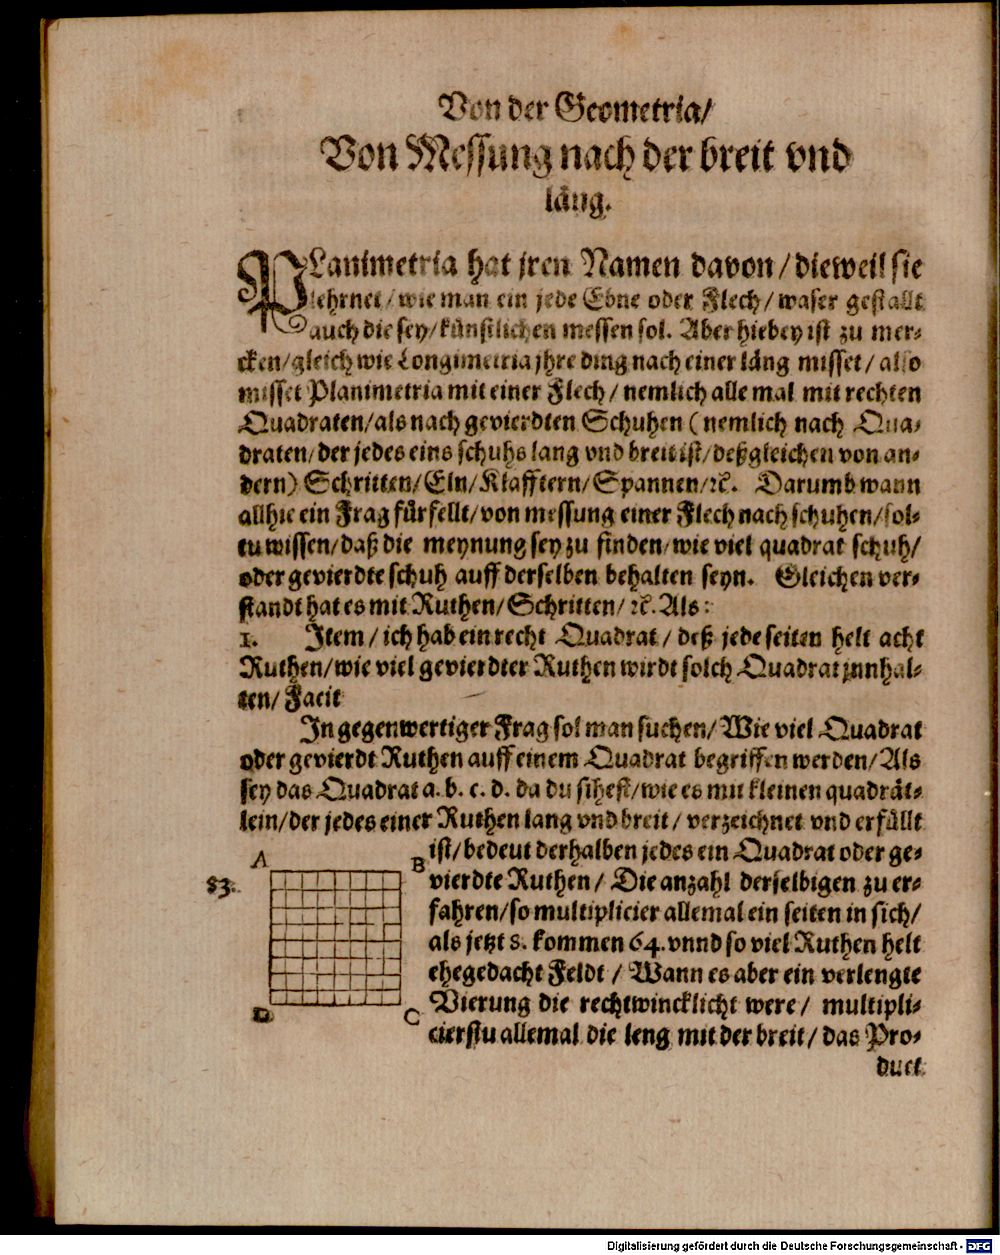 Von der Geometria/
Von Messung nach der breit vnd
läng.
PLanimetria hat jren Namen davon/dieweil sie
lehrnet/wie man ein jede Ebne oder Flech/waser gestallt
auch die sey/künstlichen messen sol. Aber hiebey ist zu mer-
cken/gleich wie Longimetria jhre ding nach einer läng misset/also
misset Planimetria mit einer Flech/nemlich alle mal mit rechten
Quadraten/als nach gevierdten Schuhen (nemlich nach Qua-
draten/der jedes eins schuhs lang vnd breit ist/deßgleichen von an-
dern) Schritten/Eln/Klafftern/Spannen/ꝛc. Darumb wann
allhie ein Frag fürfellt/von messung einer Flech nach schuhen/sol-
tu wissen/daß die meynung sey zu finden/wie viel quadrat schuh/
oder gevierdte schuh auff derselben behalten seyn. Gleichen ver-
standt hat es mit Ruthen/Schritten/ꝛc. Als:
1. Item/ich hab ein recht Quadrat/deß jede seiten helt acht
Ruthen/wie viel gevierdter Ruthen wirdt solch Quadrat jnnhal-
ten/Facit
In gegenwertiger Frag sol man suchen/Wie viel Quadrat
oder gevierdt Ruthen auff einem Quadrat begriffen werden/Als
sey das Quadrat a. b. c. d. da du sihest/wie es mit kleinen quadrät-
lein/der jedes einer Ruthen lang vnd breit/verzeichnet vnd erfüllt
ist/bedeut derhalben jedes ein Quadrat oder ge-
vierdte Ruthen/Die anzahl derselbigen zu er-
fahren/so multiplicier allemal ein seiten in sich/
als jetzt 8. kommen 64. vnnd so viel Ruthen helt
ehegedacht Feldt/Wann es aber ein verlengte
Vierung die rechtwincklicht were/multipli-
cierstu allemal die leng mit der breit/das Pro-
duct
A B
83.
D C
Digitalisierung gefördert durch die Deutsche Forschungsgemeinschaft - DFG